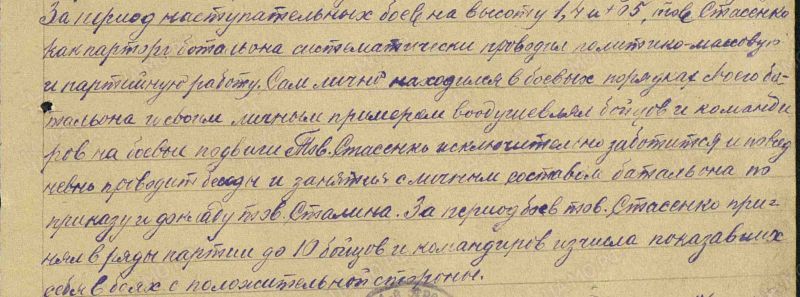 За период наступательных боев на высоту 1,4 и +05, тов. Стасенко
как парторг батальона систематически проводил политико-массовую
и партийную работу. Сам лично находился в боевых порядках своего ба-
тальона и своим личным примером воодушевлял бойцов и команди
ров на боевые подвиги Тов. Стасенко исключительно заботится и повсед
невно проводит беседы и занятия с личным составом батальона по
приказу и докладу тов. Сталина. За период боев тов. Стасенко при-
нял в ряды партии до 10 бойцов и командиров из числа показавших
себя в боях с положительной стороны.